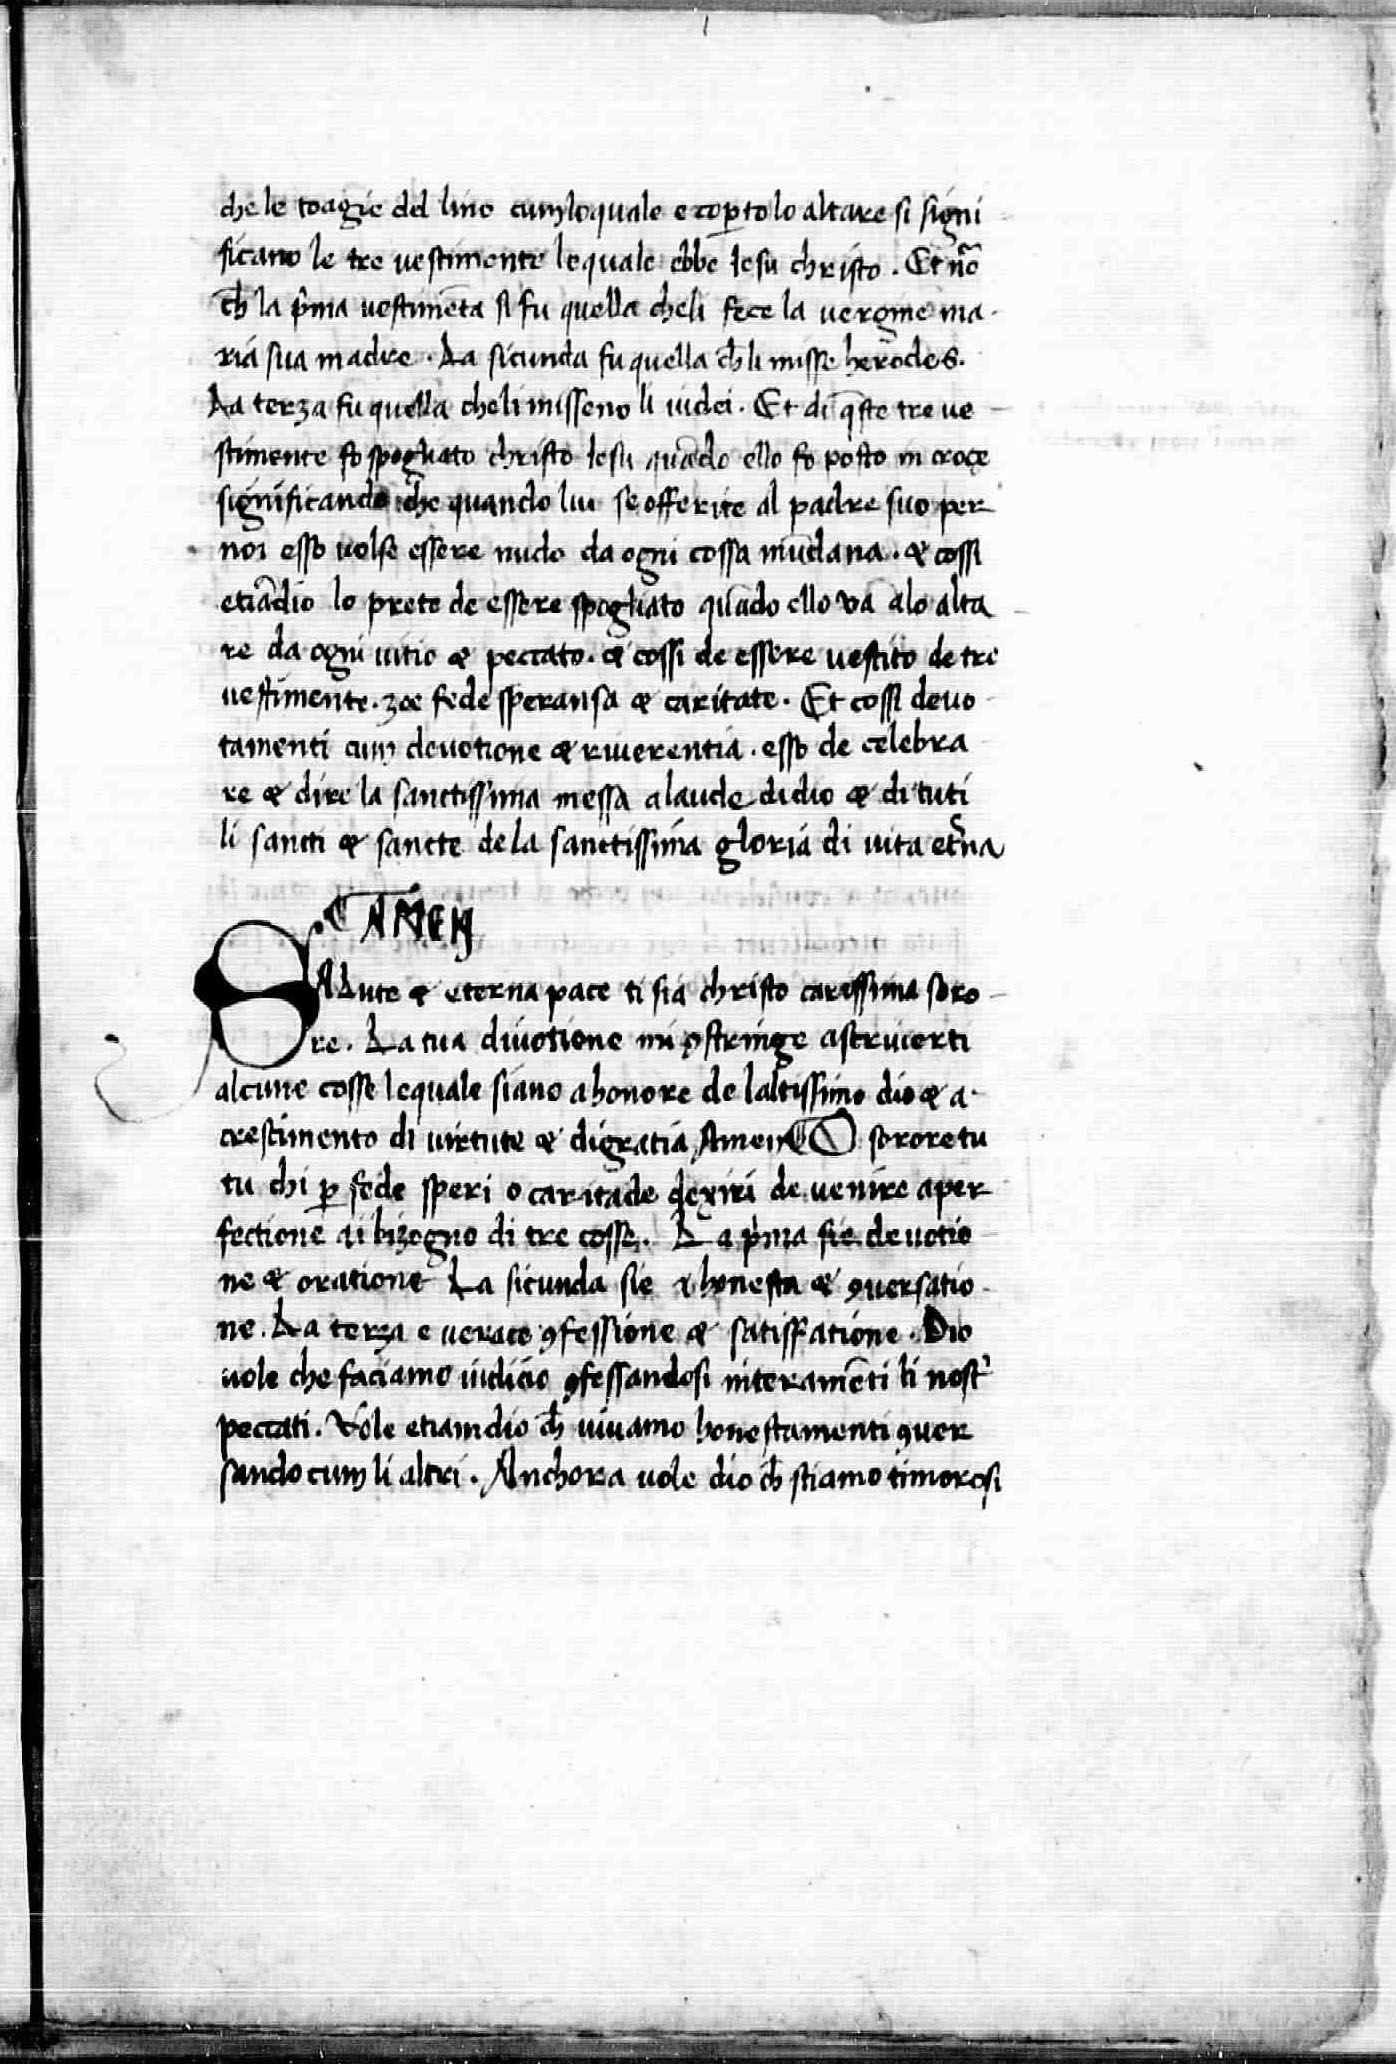 che le toagie del lino cum lo quale e coꝑto lo altare si signi
ficano le tre uestimente le quale ebbe Iesu christo. Et nõ
ch̄ la p̍ma uestimẽta si fu quella che li fece la uergine ma
ria sua madre. La sicunda fu quella ch̄ li misse herodes.
La terza fu quella che li misseno li iudei. Et di q̄ste tre ue
stimente fo spogliato christo Iesu quãdo ello fo posto in croce
significando che quando lui se offerite al padre suo per
noi esso uolse essere nudo da ogni cossa mũdana. & cossi
etiãdio lo prete de essere spogliato quãdo ello va a lo alta
re da ogni uitio & peccato. & cossi de essere uestito de tre
uestimente. zoe fede speransa & caritate. Et cossi deuo
tamenti cum deuotione & riuerentia. esso de celebra
re & dire la sanctissima messa a laude di dio & di tuti
li sancti & sancte de la sanctissima gloria di uita et̃na
AMEN
SALute & eterna pace ti sia christo carissima soro
re. La tua diuotione mi ꝯstringe a scriuerti
alcune cosse le quale siano a honore de laltissimo dio & a
crescimento di uirtute & di gratia Amen O sorore tu
tu chi ꝑ fede speri o caritade dexiri de uenire a per
fectione ai bizogno di tre cosse. La p̍ma sie deuotio
ne & oratione La sicunda sie honesta & ꝯuersatio
ne. La terza e uerace ꝯfessione & satisfatione. Dio
uole che faciamo iudicio ꝯfessandosi interamẽti li nost̍
peccati. Vole etiamdio ch̄ uiuamo honestamenti ꝯuer
sando cum li altri. Anchora uole dio ch̄ stiamo timorosi